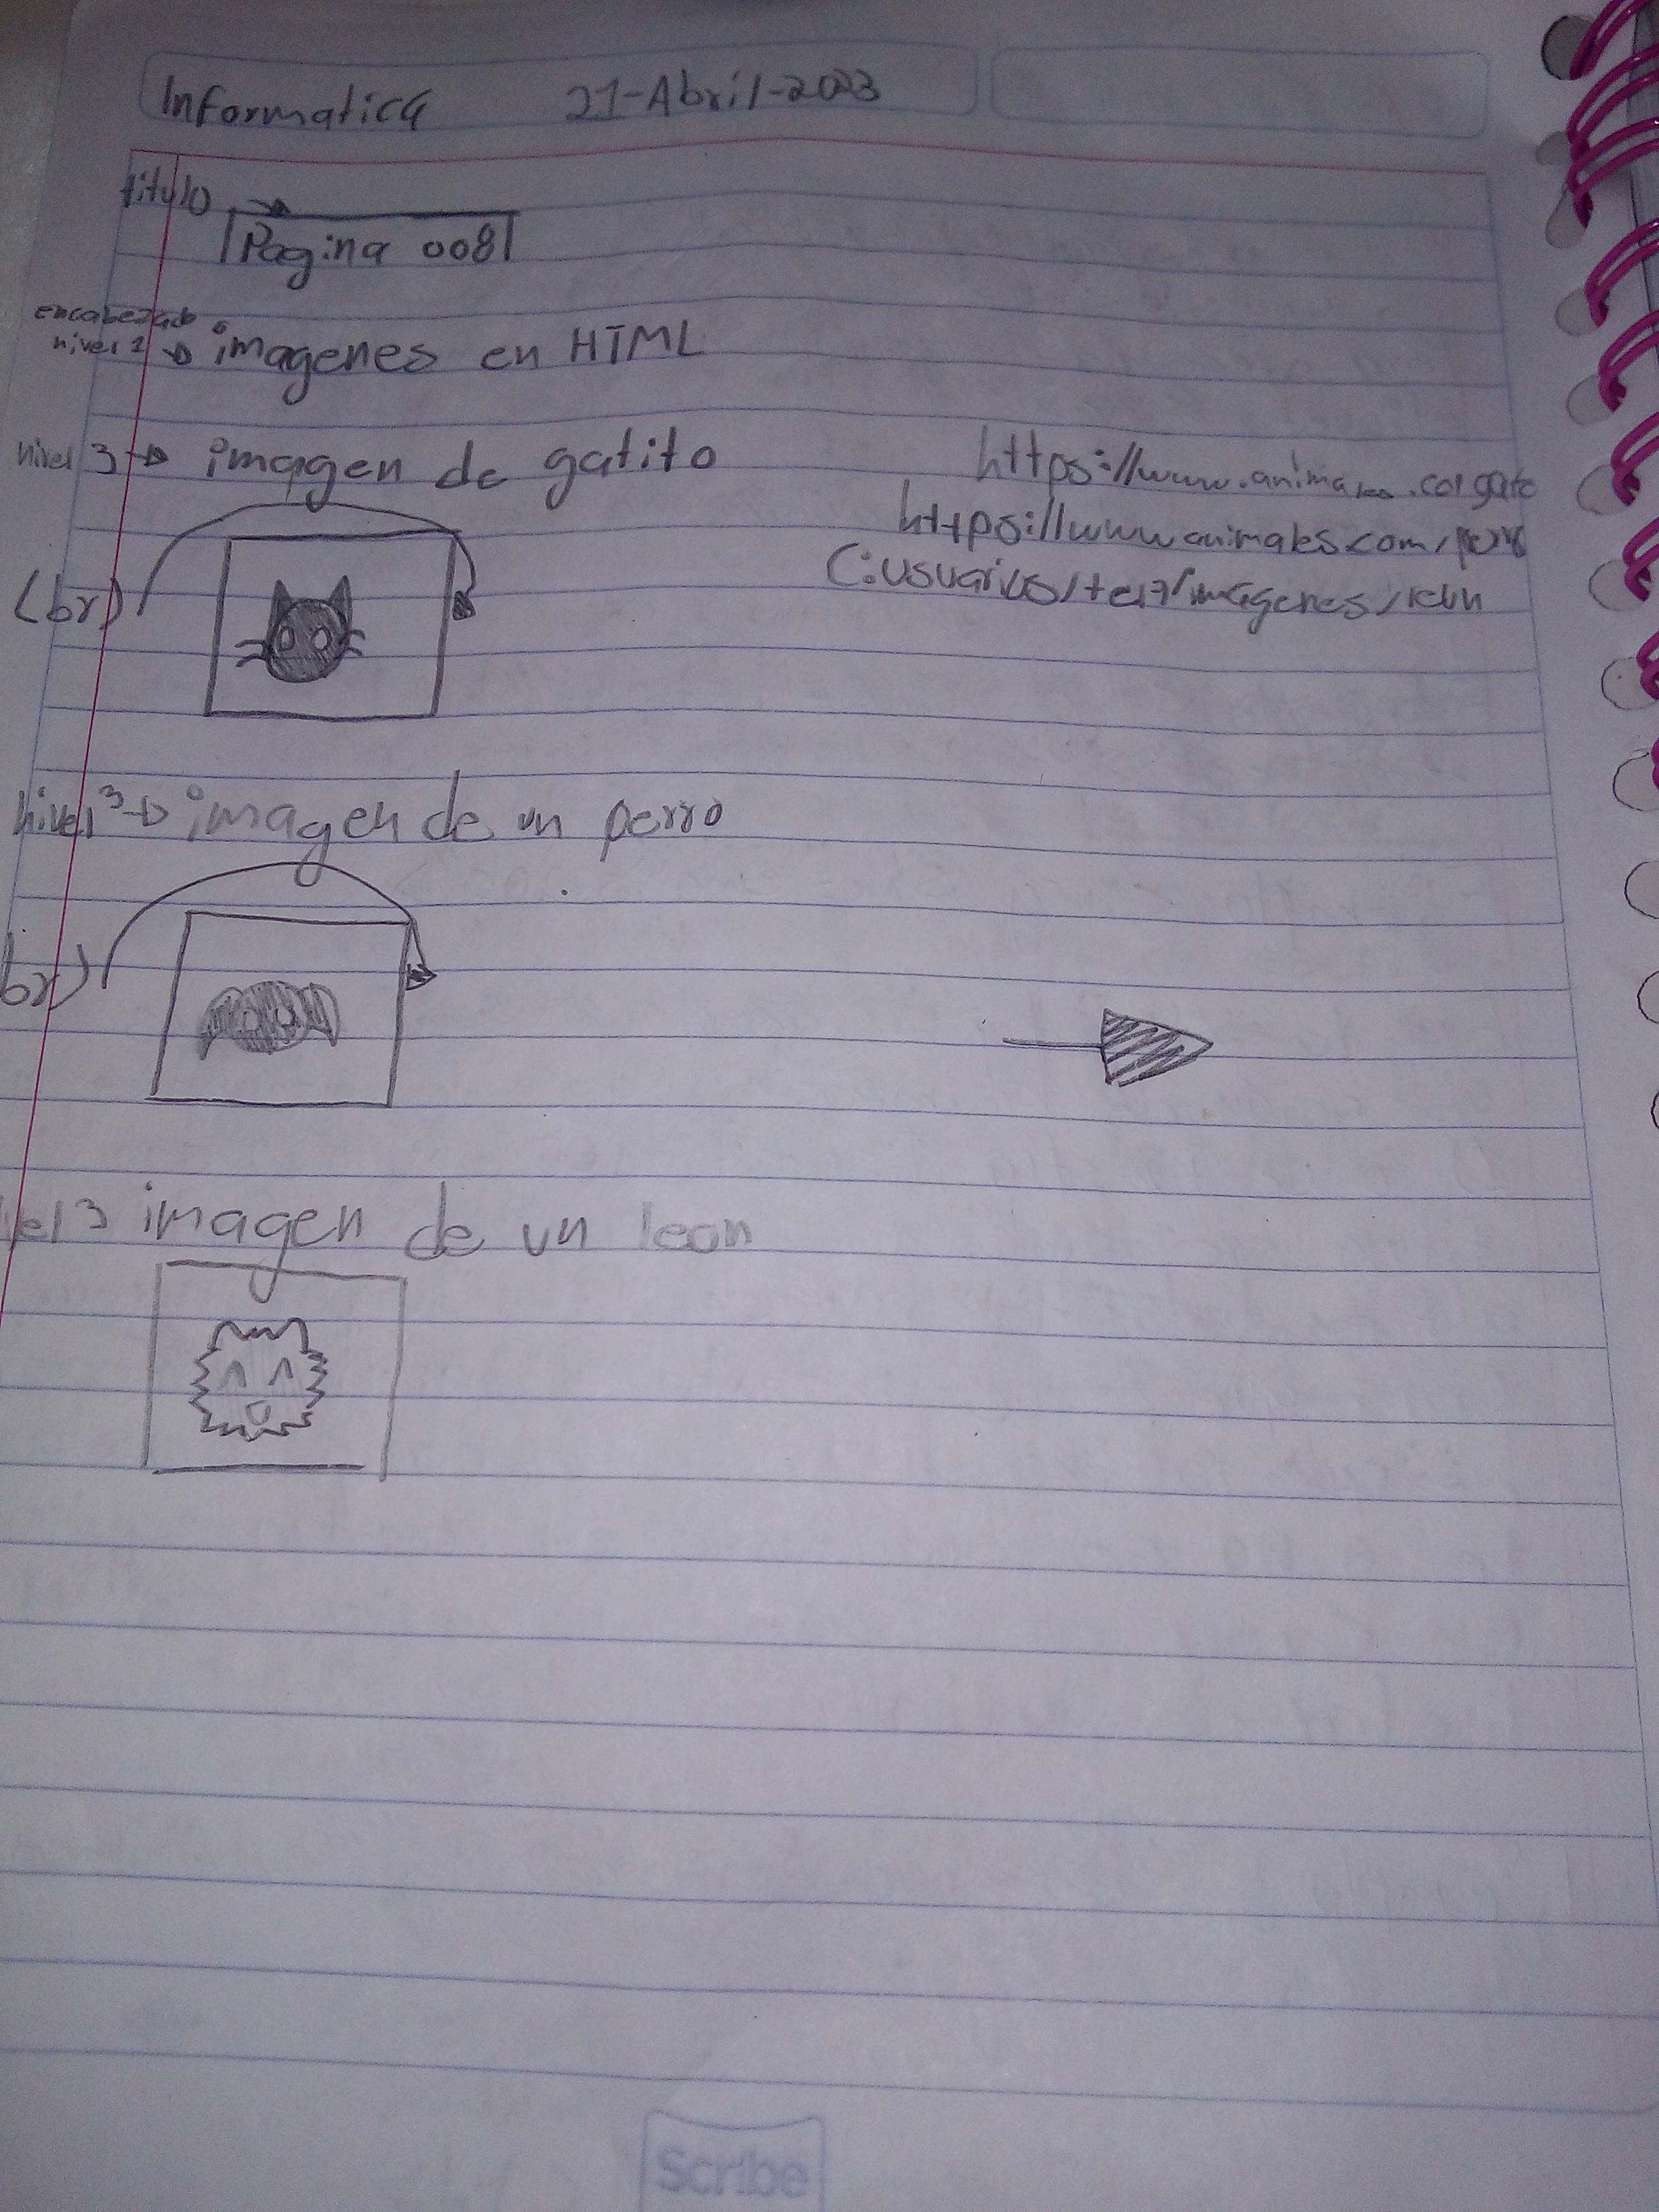 Informatica 21-Abril-2023
titulo
Pagina 008
encabezado
nivel 1 imagenes en HTML
nivel 3 imagen de gatito
https://www.animales.co/gato
https://www.animales.com/perro
C:usuarios/ /imagenes/leon
(br)
nivel 3 imagen de un perro
br)
el 3 imagen de un leon
Scribe